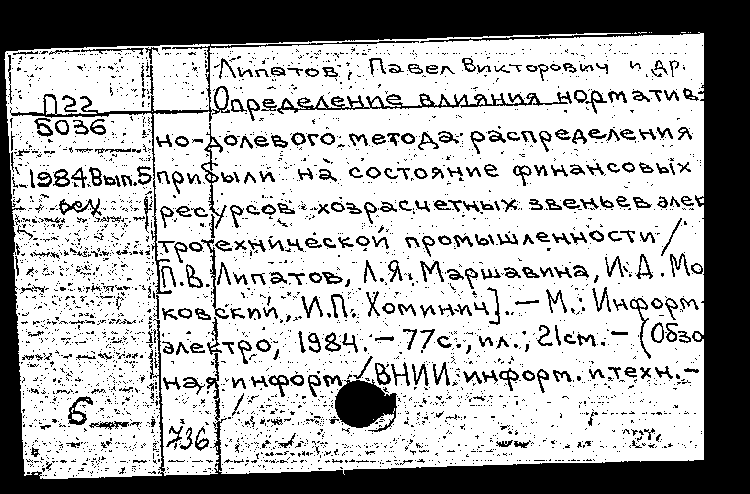 Липатов, Павел Викторович и др.
П22
Б036
1984.Вып.5
Определение влияния норматив-
но-долевого метода распределения
прибыли на состояние финансовых
ресурсов хозрасчетных звеньев элек
тротехнической промышленности /
[П.В. Липатов, Л.Я. Маршавина, И.Д. Мо
ковский, И.П. Хоминич]. — М.: Информ-
электро, 1984. — 77с., ил.; 21см. — (Обзо
ная информ. / ВНИИ информ. и техн.-
Б
736